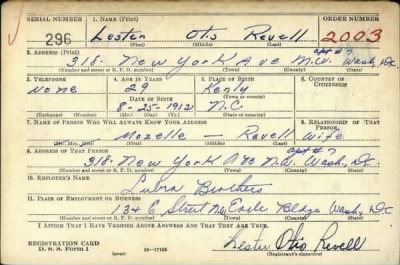 SERIAL NUMBER 1. NAME (Print) ORDER NUMBER
296 Lester Otis Revell 2003
(First) (Middle) (Last)
2. ADDRESS (Print) apt #7
318- New York Ave N.W. Wash, D.C.
(Number and street or R. F. D. number) (Town) (County) (State)
3. TELEPHONE 4. AGE IN YEARS 5. PLACE OF BIRTH 6. COUNTRY OF CITIZENSHIP
None 29 Kenly
DATE OF BIRTH (Town or county)
8-25-1912 N.C
(Mo.) (Day) (Yr.) (State or country)
7. NAME OF PERSON WHO WILL ALWAYS KNOW YOUR ADDRESS 8. RELATIONSHIP OF THAT PERSON
Mozelle — Revell Wife
(Mr., Mrs., Miss) (First) (Middle) (Last)
9. ADDRESS OF THAT PERSON apt #7
318- New York Ave N.W. Wash, D.C.
(Number and street or R. F. D. number) (Town) (County) (State)
10. EMPLOYER'S NAME
Brothers
11. PLACE OF EMPLOYMENT OR BUSINESS
13 & E Street NW Earle Bldg Wash, D.C
(Number and street or R. F. D. number) (Town) (County) (State)
I AFFIRM THAT I HAVE VERIFIED ABOVE ANSWERS AND THAT THEY ARE TRUE.
REGISTRATION CARD
D. S. S. FORM 1 16-17105 Lester Otis Revell
(over) (Registrant's signature)